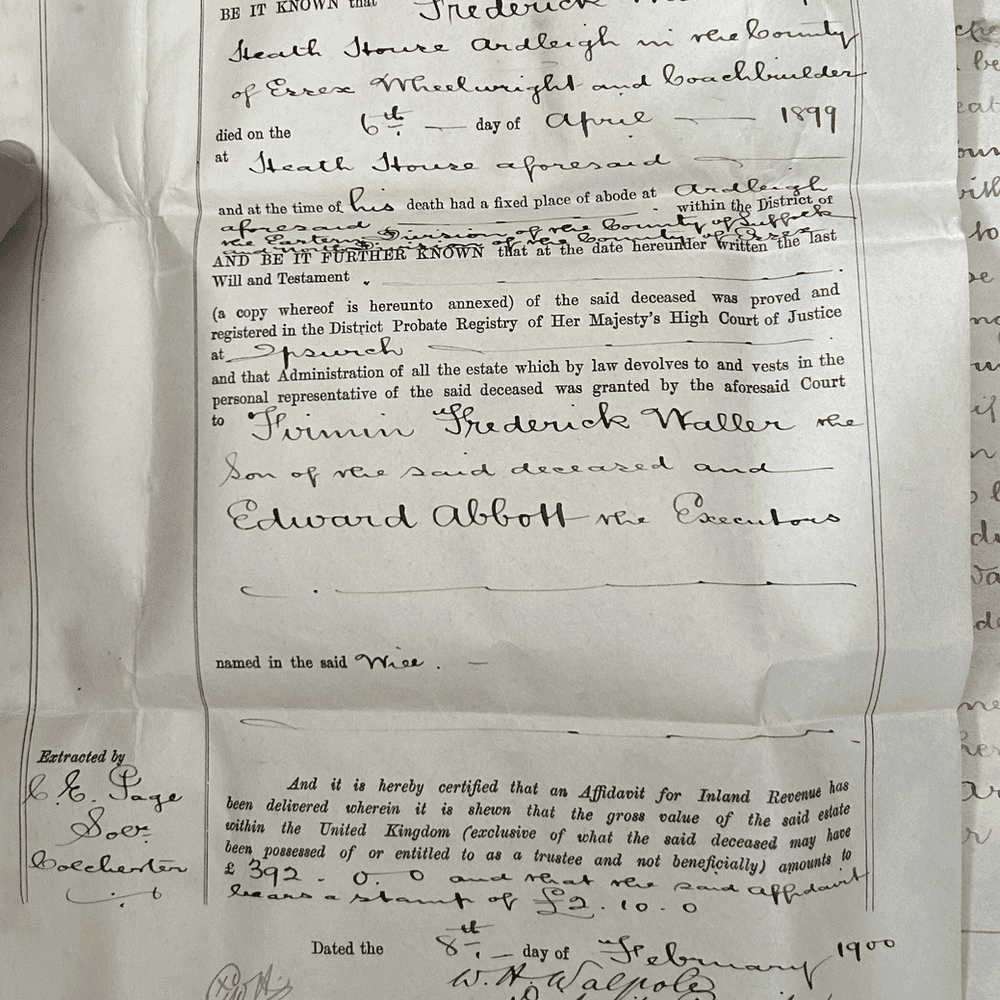 BE IT KNOWN that Frederick
Heath House Ardleigh in the County
of Essex Wheelwright and Coachbuilder
died on the 6th day of April 1899
at Heath House aforesaid
and at the time of his death had a fixed place of abode at Ardleigh
aforesaid within the District of
the Eastern Division of the County of Suffolk
of the County of Essex
AND BE IT FURTHER KNOWN that at the date hereunder written the last
Will and Testament
(a copy whereof is hereunto annexed) of the said deceased was proved and
registered in the District Probate Registry of Her Majesty's High Court of Justice
at Ipswich
and that Administration of all the estate which by law devolves to and vests in the
personal representative of the said deceased was granted by the aforesaid Court
to Firmin Frederick Waller the
Son of the said deceased and
Edward Abbott the Executors
named in the said Will.
Extracted by
C. E. Page
Solr.
Colchester
And it is hereby certified that an Affidavit for Inland Revenue has
been delivered wherein it is shewn that the gross value of the said estate
within the United Kingdom (exclusive of what the said deceased may have
been possessed of or entitled to as a trustee and not beneficially) amounts to
£ 392 . 0 . 0 and that the said affidavit
bears a stamp of £2 . 10 . 0
Dated the 8th day of February 1900
W. H. Walpole